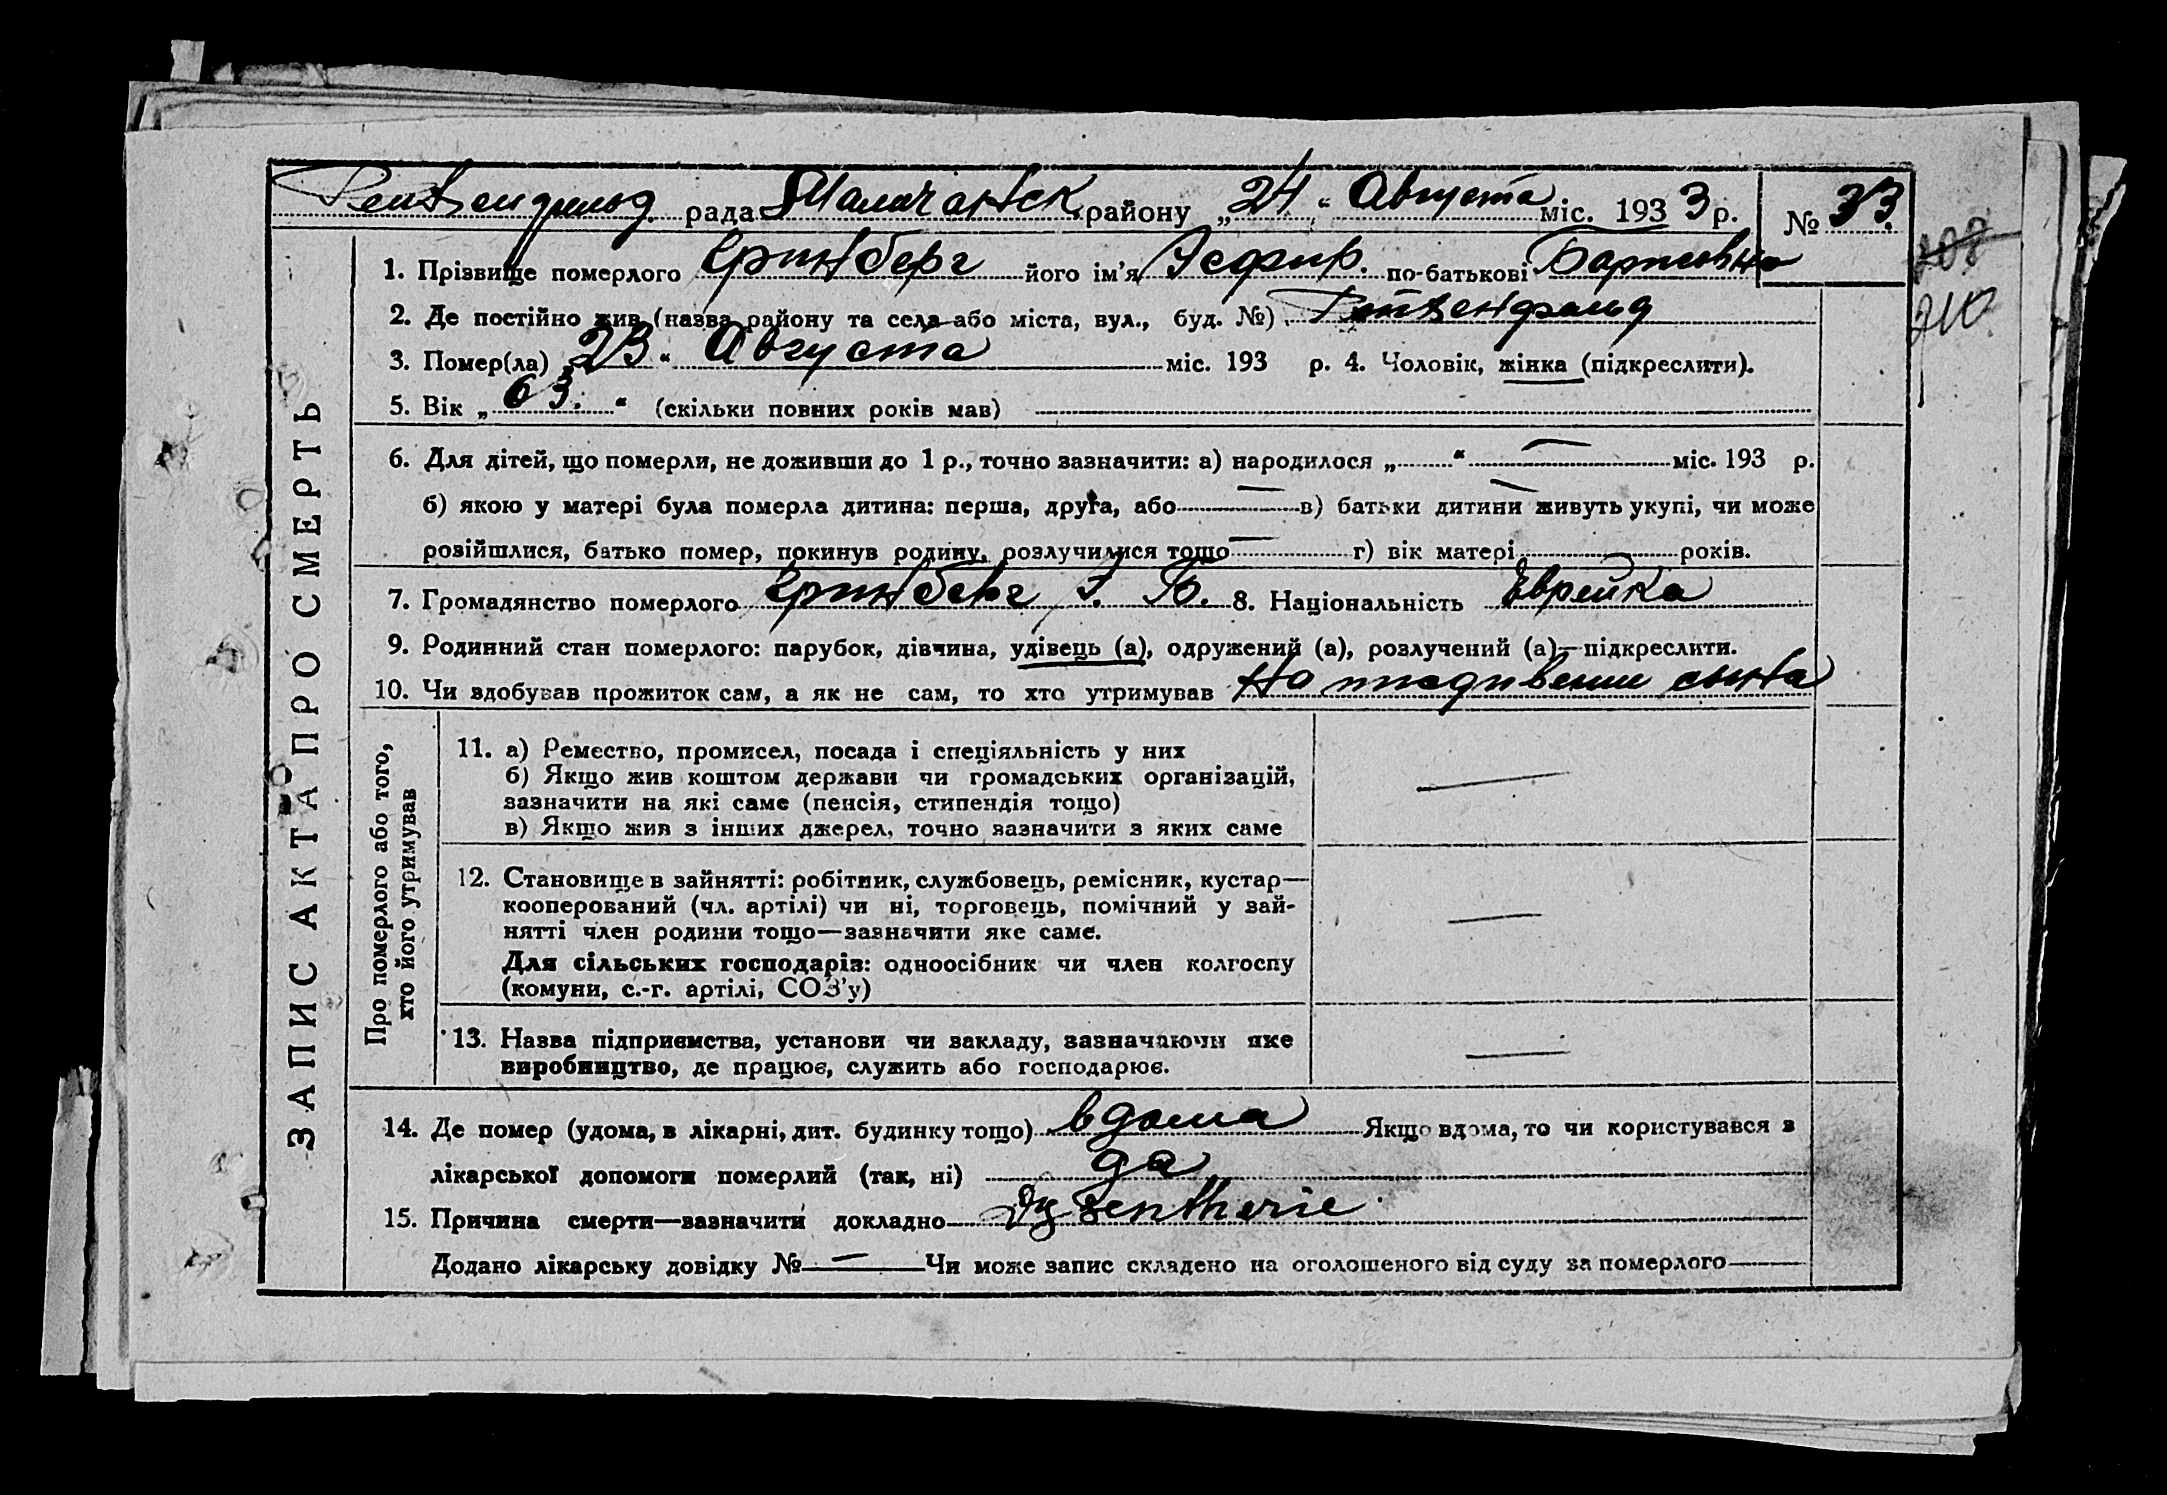 рада Малачанск району „ 24 “ Августа міс. 193 3 р. № 33
208
210
ЗАПИС АКТА ПРО СМЕРТЬ
1. Прізвище померлого Гринберг його ім'я Эсфир. по-батькові
2. Де постійно жив (назва району та села або міста, вул., буд. №)
3. Помер(ла) „ 23 “ Августа міс. 193 р. 4. Чоловік, жінка (підкреслити).
5. Вік „ 63. “ (скільки повних років мав)
6. Для дітей, що померли, не доживши до 1 р., точно зазначити: а) народилося „ “ — міс. 193 р.
б) якою у матері була померла дитина: перша, друга, або — в) батьки дитини живуть укупі, чи може
розійшлися, батько помер, покинув родину, розлучилися тощо — г) вік матері — років.
7. Громадянство померлого Гринберг Э. Б. 8. Національність Еврейка
9. Родинний стан померлого: парубок, дівчина, удівець (а), одружений (а), розлучений (а)—підкреслити.
10. Чи здобував прожиток сам, а як не сам, то хто утримував На сына
Про померлого або того,
хто його утримував
11. а) Ремество, промисел, посада і спеціяльність у них
б) Якщо жив коштом держави чи громадських організацій,
зазначити на які саме (пенсія, стипендія тощо)
в) Якщо жив з інших джерел, точно зазначити з яких саме
—
12. Становище в зайнятті: робітник, службовець, ремісник, кустар—
кооперований (чл. артілі) чи ні, торговець, помічний у зай-
нятті член родини тощо—зазначити яке саме.
Для сільських господарів: одноосібник чи член колгоспу
(комуни, с.-г. артілі, СОЗ'у)
—
13. Назва підприємства, установи чи закладу, зазначаючи яке
виробництво, де працює, служить або господарює.
—
14. Де помер (удома, в лікарні, дит. будинку тощо) вдома Якщо вдома, то чи користувався з
лікарської допомоги померлий (так, ні) да
15. Причина смерти—зазначити докладно Dyzentherie
Додано лікарську довідку № — Чи може запис складено на оголошеного від суду за померлого